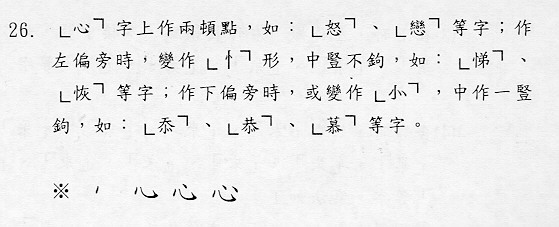 26. 「心」字上作兩頓點，如：「怒」、「戀」等字；作
左偏旁時，變作「忄」形，中豎不鉤，如：「悌」、
「恢」等字；作下偏旁時，或變作「⺗」，中作一豎
鉤，如：「忝」、「恭」、「慕」等字。
※ 丶 心 心 心